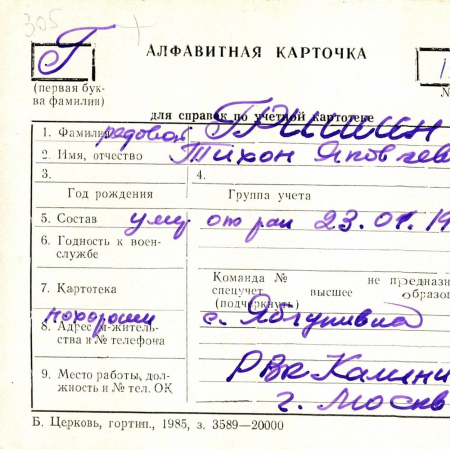 305
Г
АЛФАВИТНАЯ КАРТОЧКА
(первая бук-
ва фамилии)
№
для справок по учетной картотеке
1. Фамилия рядовой ГРИШИН
2. Имя, отчество Тихон Яковлев
3.
4.
Год рождения
Группа учета
5. Состав ум. от ран 23.01.19
6. Годность к воен-
службе
7. Картотека
Команда № не предназн
спецучет высшее образо
(подчеркнуть)
похорон с.
8. Адрес м-житель-
ства и № телефона
9. Место работы, дол-
жность и № тел. ОК
РВК Калини
г. Москв
Б. Церковь, гортип., 1985, з. 3589—20000